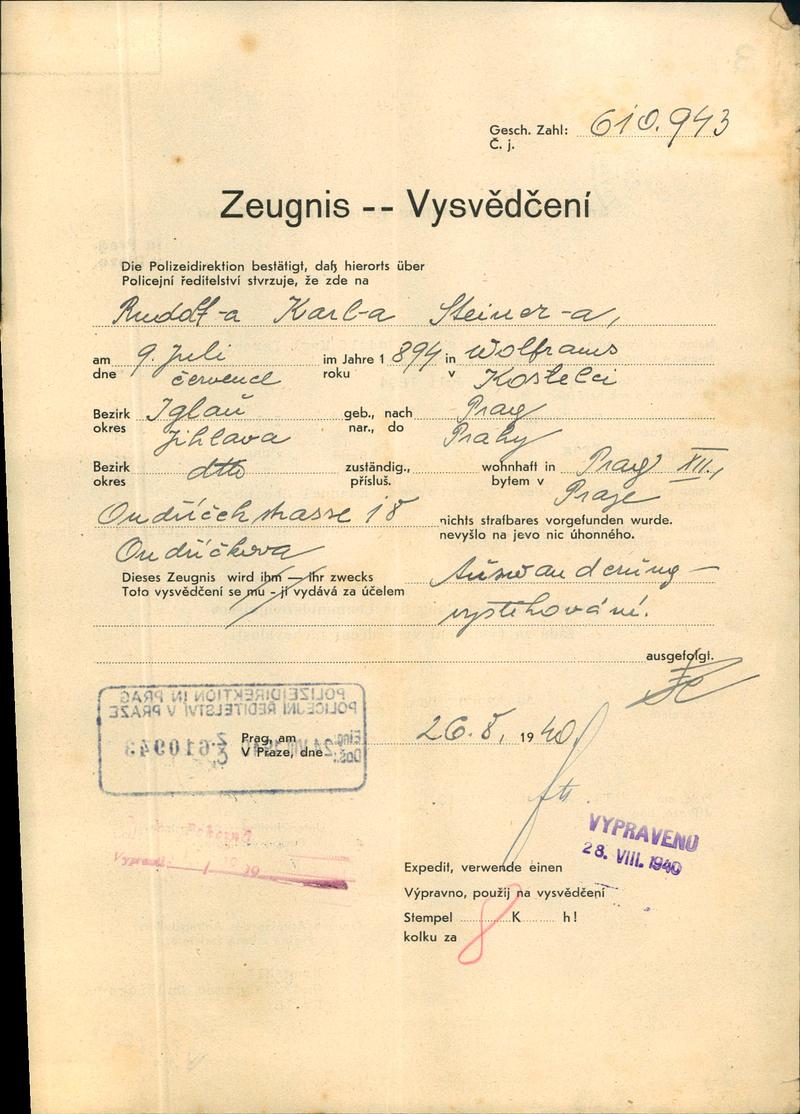 Gesch. Zahl: 610.943
Č. j.
Zeugnis -- Vysvědčení
Die Polizeidirektion bestätigt, daß hierorts über
Policejní ředitelství stvrzuje, že zde na
Rudolf-a Karl-a Steiner-a,
am 9. Juli im Jahre 1 894 in Wolframs
dne července roku v Kostelci
Bezirk Iglau geb., nach Prag
okres Jihlava nar., do Prahy
Bezirk dtto zuständig., wohnhaft in Prag XII.,
okres přísluš. bytem v Praze
Ondříčekstrasse 18 nichts strafbares vorgefunden wurde.
nevyšlo na jevo nic úhonného.
Ondříčkova
Dieses Zeugnis wird ihm — ihr zwecks Auswanderung —
Toto vysvědčení se mu - jí vydává za účelem vystěhování.
ausgefolgt.
POLIZEIDIREKTION IN PRAG
POLICEJNÍ ŘEDITELSTVÍ V PRAZE
Prag, am 26.8. 1940
V Praze, dne
610943
VYPRAVENO
28. VIII. 1940
Expedit, verwende einen
Výpravno, použij na vysvědčení
Stempel 8 K h!
kolku za